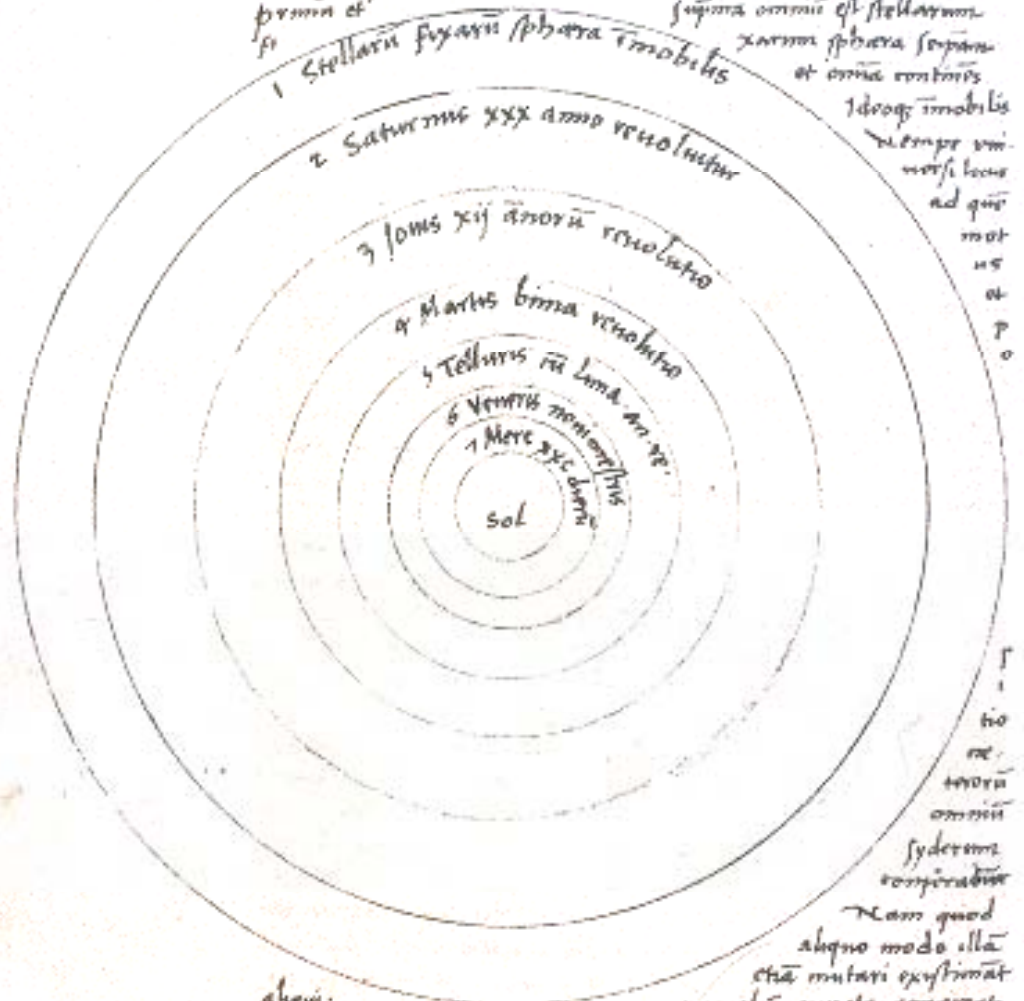 prima et
supīma omniū est stellarum
xarum sphæra seipām
et omīa continēs
Ideoqȝ īmobilis
nempe uni
uersi locus
ad quē
mot
us
et
p
o
1 Stellarū fixarū sphæra īmobilis
2 Saturnus xxx anno reuoluitur
3 Jouis xij ānorū reuolutio
4 Martis bima reuolutio
5 Telluris cū luna an. re.
6 Veneris nonimestris
7 Merc xxc dierū
Sol
s
i
tio
ce-
terorū
omniū
syderum
Nam quod
aliquo modo illā
etiā mutari existimāt